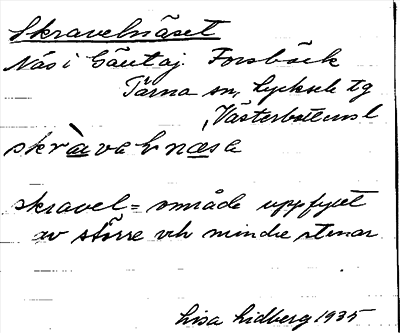 Skravelnäset
Näs i Gäutaj. Forsbäck
Tärna sn, Lycksele tg
Västerbottens l
skràvelnæsa
skravel = område uppfyllt
av större och mindre stenar
Lisa Lidberg 1935